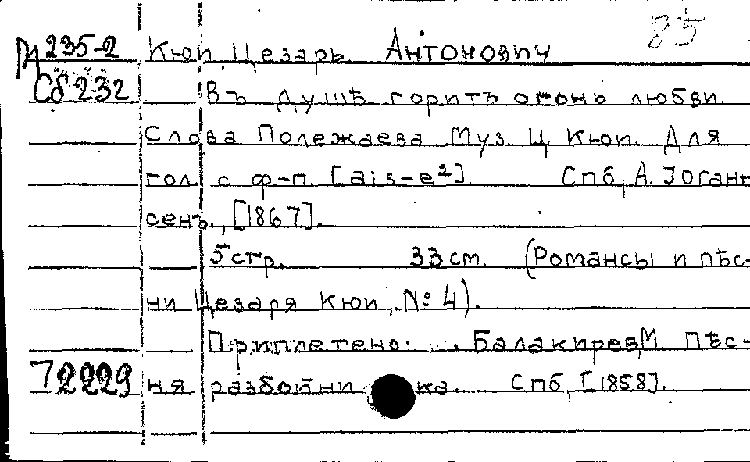 85
П/235-2 Кюи Цезарь Антонович
Сб 232 Въ душѣ горитъ огонь любви.
Слова Полежаева Муз. Ц. Кюи. Для
гол. с ф-п. [ais-e²]. Спб, А. Іоган-
сенъ, [1867].
5 стр. 33 см. (Романсы и пѣс-
ни Цезаря Кюи, № 4).
Приплетено: Балакирев, М. Пѣс-
72229 ня разбойника. Спб, [1858].